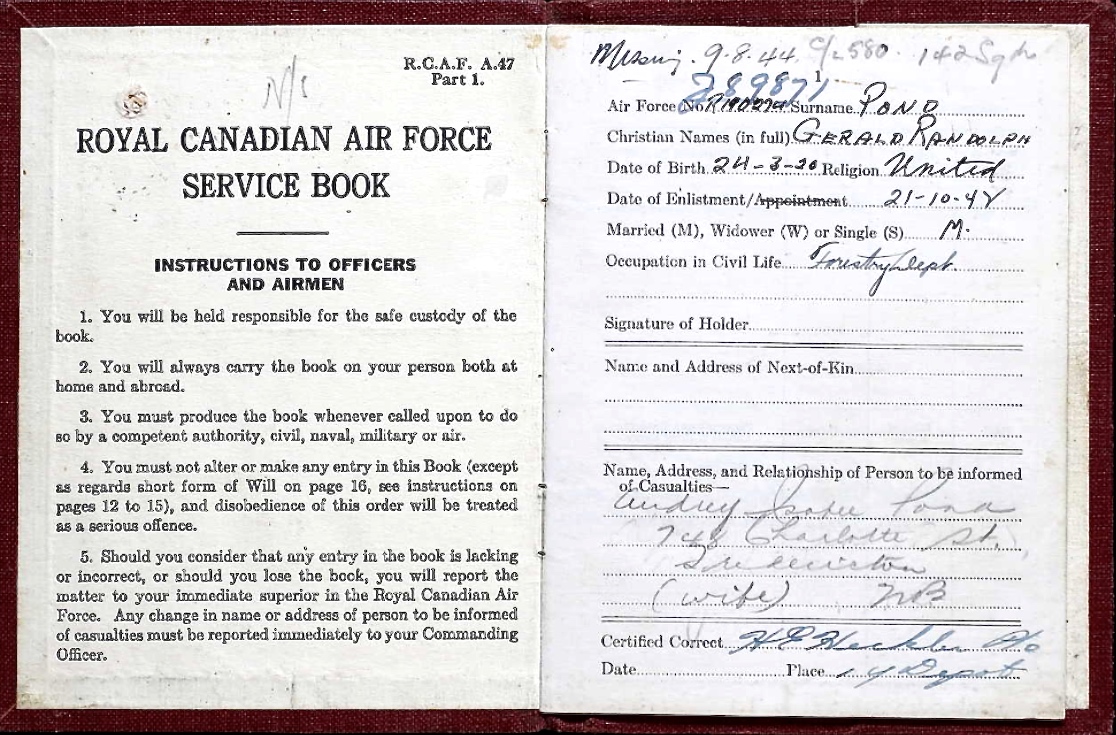 R.C.A.F. A.47
Part 1.
N/S
ROYAL CANADIAN AIR FORCE
SERVICE BOOK
INSTRUCTIONS TO OFFICERS
AND AIRMEN
1. You will be held responsible for the safe custody of the
book.
2. You will always carry the book on your person both at
home and abroad.
3. You must produce the book whenever called upon to do
so by a competent authority, civil, naval, military or air.
4. You must not alter or make any entry in this Book (except
as regards short form of Will on page 16, see instructions on
pages 12 to 15), and disobedience of this order will be treated
as a serious offence.
5. Should you consider that any entry in the book is lacking
or incorrect, or should you lose the book, you will report the
matter to your immediate superior in the Royal Canadian Air
Force. Any change in name or address of person to be informed
of casualties must be reported immediately to your Commanding
Officer.
Missing. 9.8.44. C/L 580. 142 Sqdn
1
J89871
Air Force No. R190274 Surname POND
Christian Names (in full) GERALD RANDOLPH
Date of Birth 24-3-20 Religion United
Date of Enlistment/Appointment 21-10-42
Married (M), Widower (W) or Single (S) M.
Occupation in Civil Life Forestry Dept.
Signature of Holder
Name and Address of Next-of-Kin
Name, Address, and Relationship of Person to be informed
of Casualties—
Audrey Isabel Pond
748 Charlotte St.
Fredericton
(wife) NB
Certified Correct F/O
Date Place 1 Y Depot